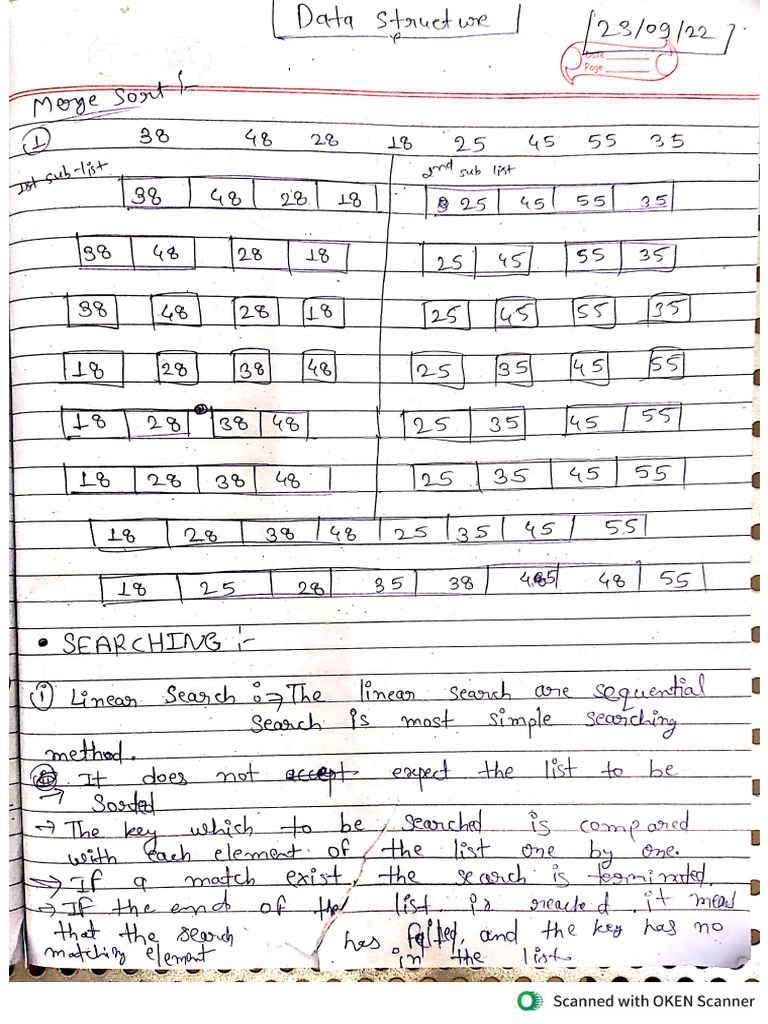 Data Structure
23/09/22
Date
Page
Merge Sort :-
1 38 48 28 18 25 45 55 35
1st sub-list 2nd sub list
38 48 28 18 25 45 55 35
38 48 28 18 25 45 55 35
38 48 28 18 25 45 55 35
18 28 38 48 25 35 45 55
18 28 38 48 25 35 45 55
18 28 38 48 25 35 45 55
18 28 38 48 25 35 45 55
18 25 28 35 38 45 48 55
• SEARCHING :-
(i) Linear Search :⇒ The linear search are sequential
search is most simple searching
method.
It does not expect the list to be
→ Sorted
→ The key which to be searched is compared
with each element of the list one by one.
→ If a match exist, the search is terminated.
→ If the end of the list is reached it mean
that the search has failed, and the key has no
matching element in the list
Scanned with OKEN Scanner